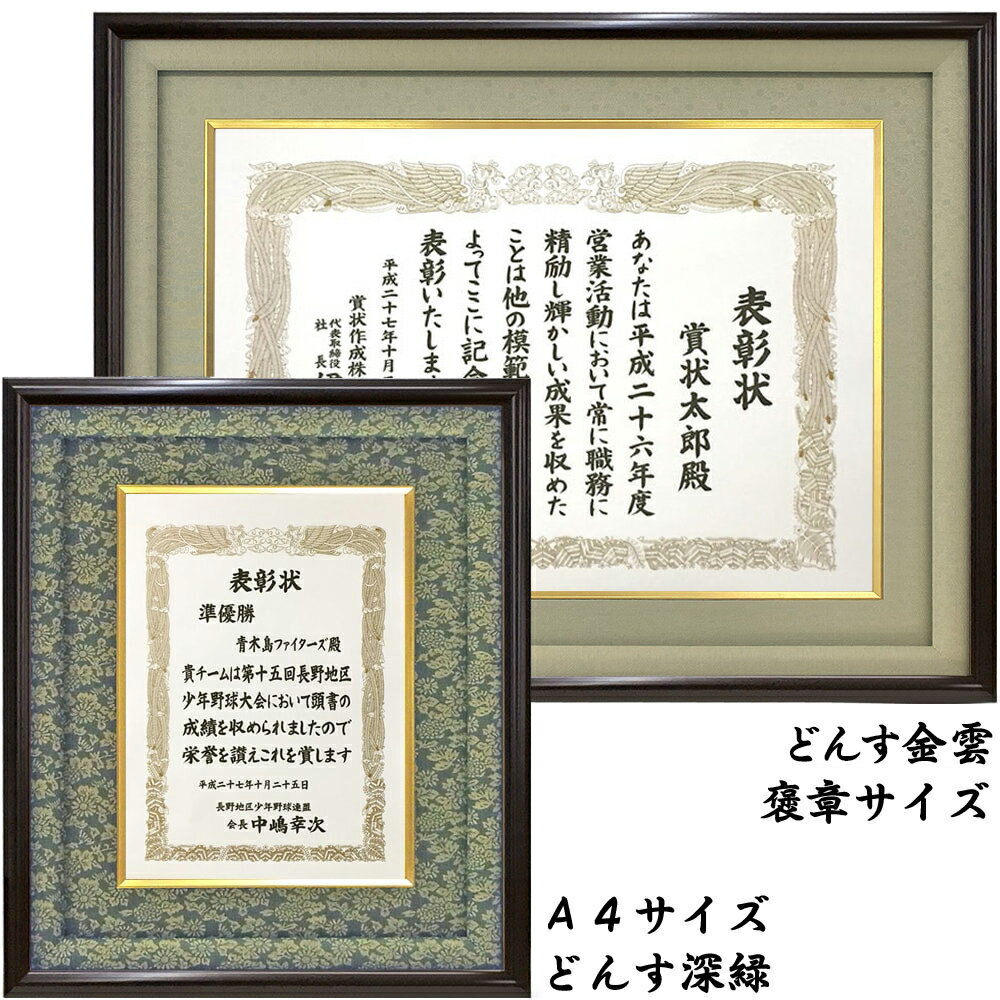 表彰状
賞状太郎殿
あなたは平成二十六年度
営業活動において常に職務に
精励し輝かしい成果を収めた
ことは他の模範
よってここに記念
表彰いたします
平成二十七年十月
賞状作成株
代表取締役
社長
表彰状
準優勝
青木島ファイターズ殿
貴チームは第十五回長野地区
少年野球大会において頭書の
成績を収められましたので
栄誉を讃えこれを賞します
平成二十七年十月二十五日
長野地区少年野球連盟
会長 中嶋幸次
どんす金雲
褒章サイズ
A4サイズ
どんす深緑